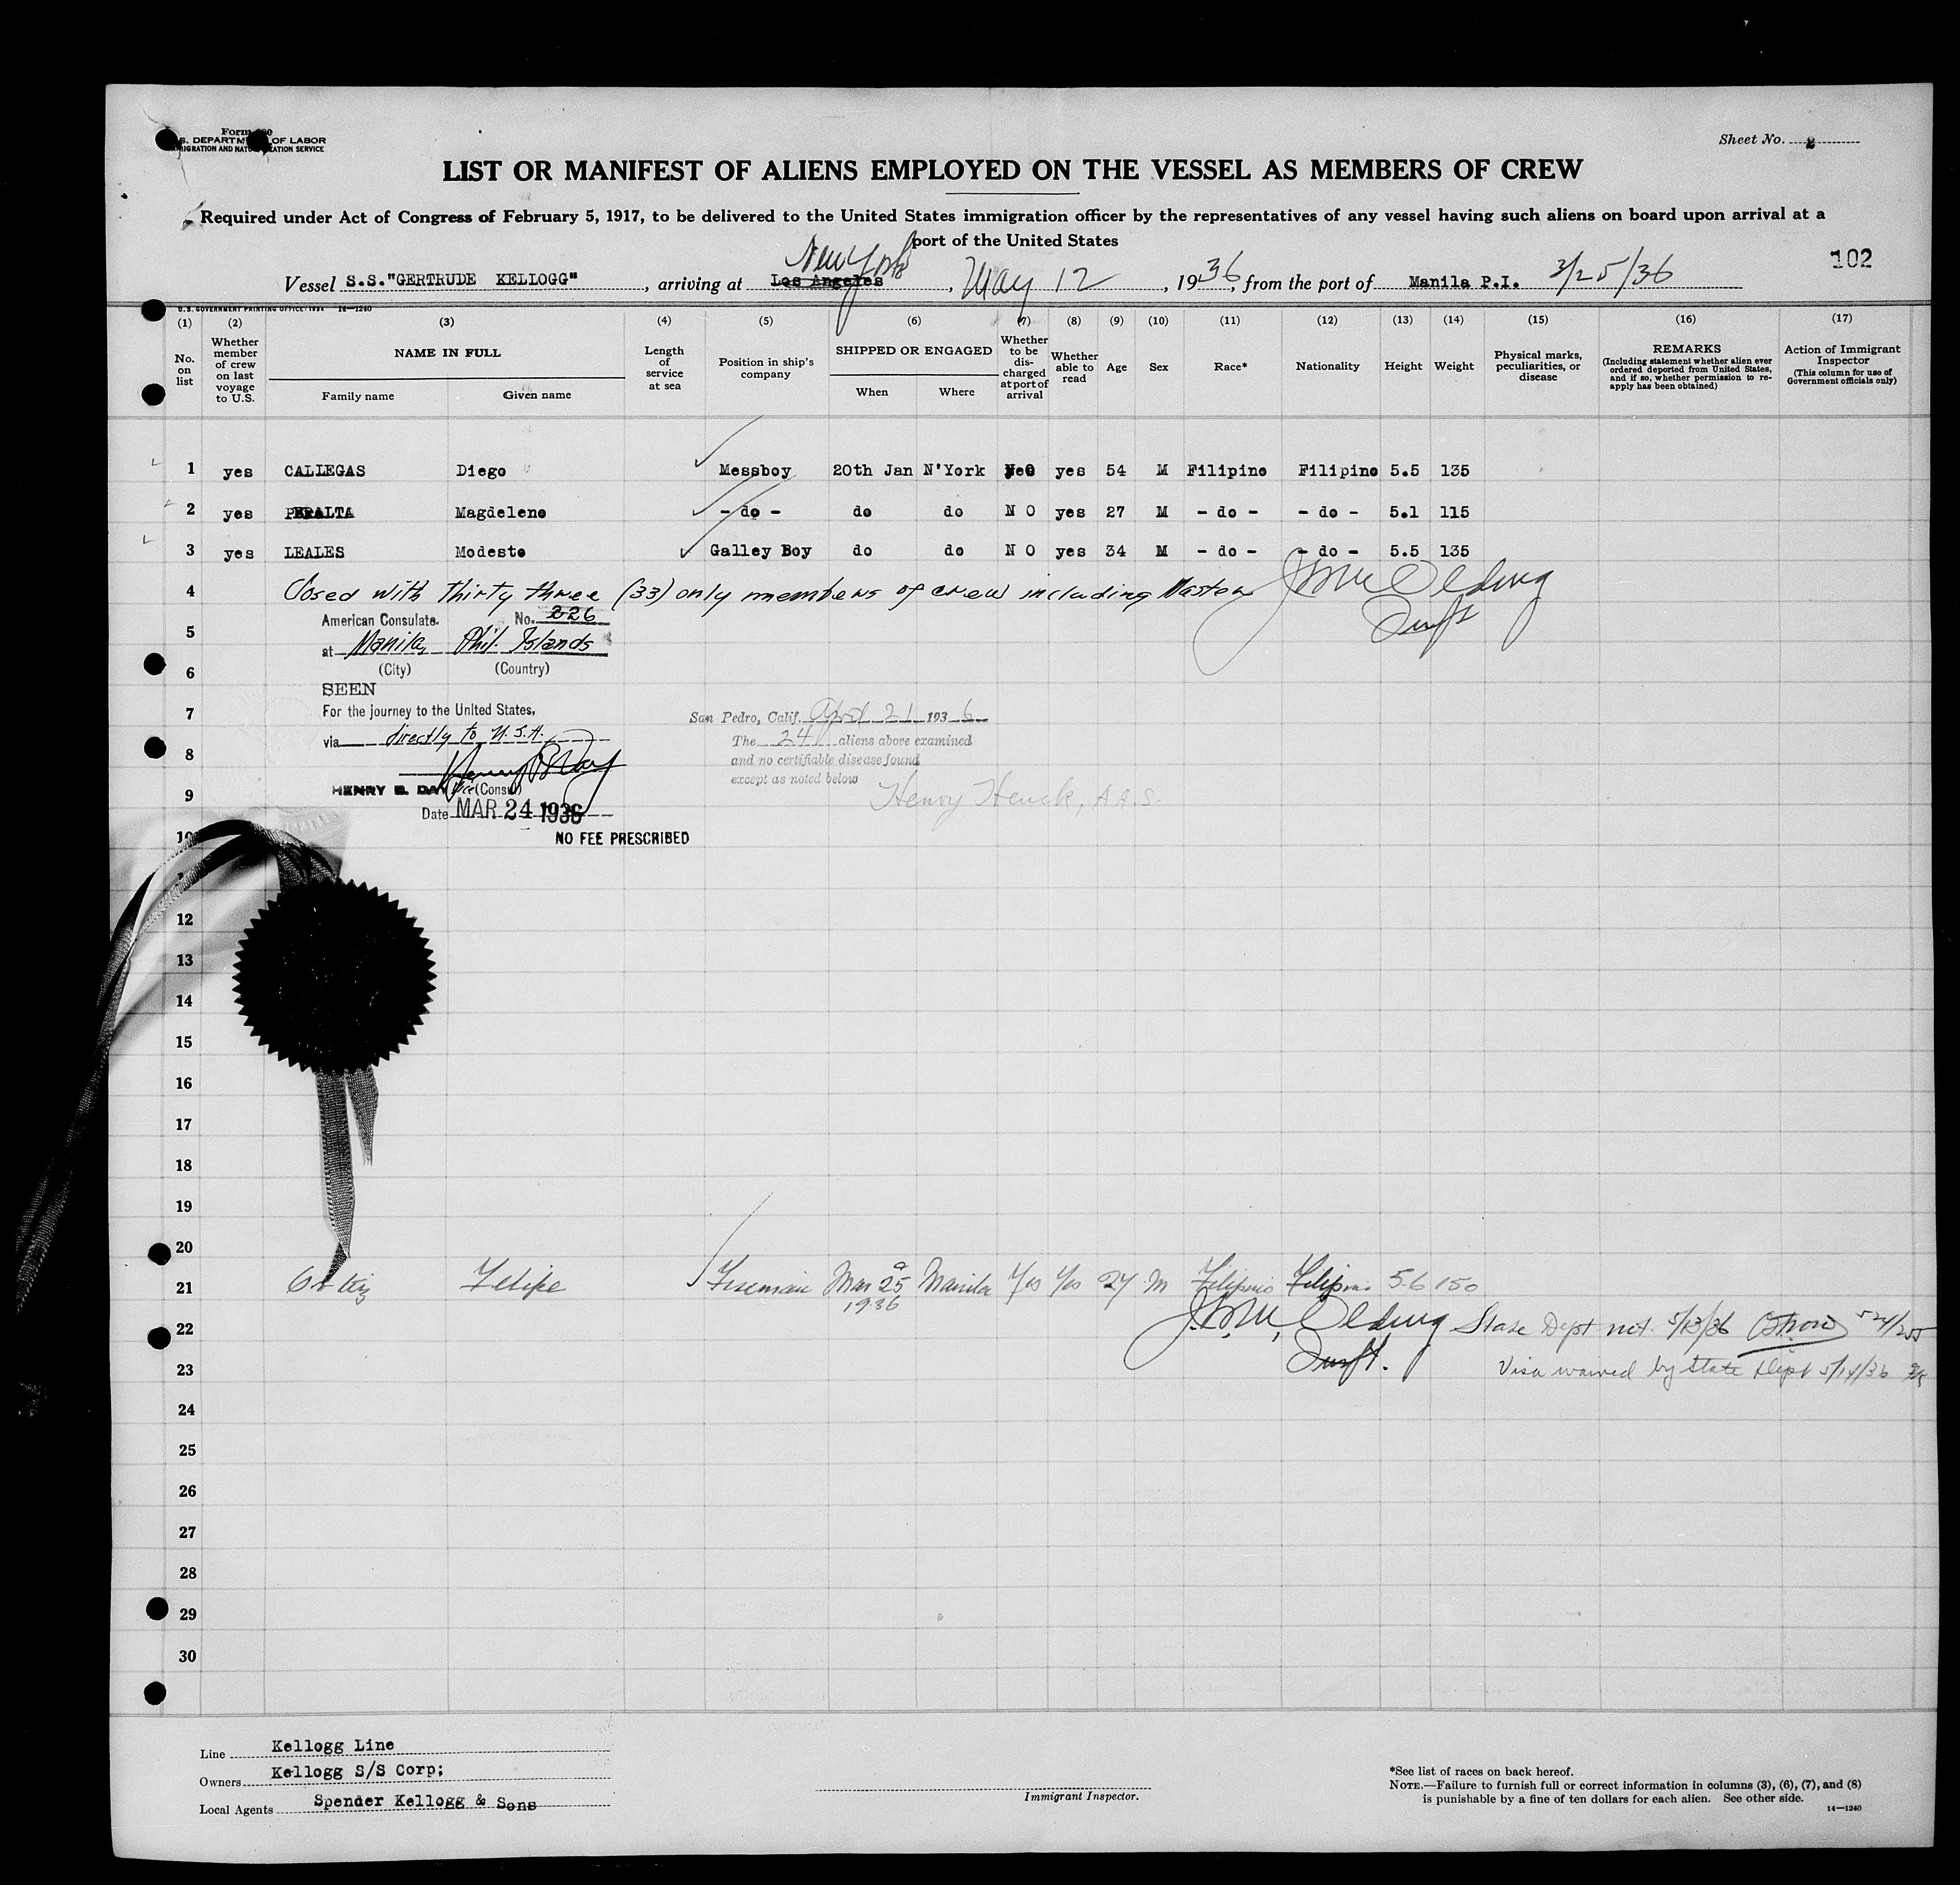 Form 680
U.S. DEPARTMENT OF LABOR
IMMIGRATION AND NATURALIZATION SERVICE
Sheet No. 2
LIST OR MANIFEST OF ALIENS EMPLOYED ON THE VESSEL AS MEMBERS OF CREW
Required under Act of Congress of February 5, 1917, to be delivered to the United States immigration officer by the representatives of any vessel having such aliens on board upon arrival at a
port of the United States
102
New York
Vessel S.S."GERTRUDE KELLOGG", arriving at Los Angeles, May 12, 1936, from the port of Manila P.I. 3/25/36
U.S. GOVERNMENT PRINTING OFFICE: 1934 14—1240
(1) (2) (3) (4) (5) (6) (7) (8) (9) (10) (11) (12) (13) (14) (15) (16) (17)
No. on list
Whether member of crew on last voyage to U.S.
NAME IN FULL
Family name Given name
Length of service at sea
Position in ship's company
SHIPPED OR ENGAGED
When Where
Whether to be discharged at port of arrival
Whether able to read
Age
Sex
Race*
Nationality
Height
Weight
Physical marks, peculiarities, or disease
REMARKS
(Including statement whether alien ever ordered deported from United States, and if so, whether permission to reapply has been obtained)
Action of Immigrant Inspector
(This column for use of Government officials only)
1 yes CALLEGAS Diego Messboy 20th Jan N'York yes 54 M Filipino Filipino 5.5 135
2 yes PERALTA Magdeleno - do - do do N O yes 27 M - do - - do - 5.1 115
3 yes LEALES Modesto Galley Boy do do N O yes 34 M - do - - do - 5.5 135
4 Closed with thirty three (33) only members of crew including Master
5
6
7
8
9
10
American Consulate. No. 226
at Manila, Phil. Islands
(City) (Country)
SEEN
For the journey to the United States,
via directly to U.S.A.
HENRY B. DAY Vice (Consul)
Date MAR 24 1936
NO FEE PRESCRIBED
San Pedro, Calif. April 21 1936
The 24 aliens above examined
and no certifiable disease found
except as noted below
Henry Henck, A A. S.
12
13
14
15
16
17
18
19
20
21 Felipe Fireman Mar 25 1936 Manila Yes Yes 27 M Filipino Filipino 5.6 150
22 State Dept not. 5/13/36
23 Visa waived by State Dept 5/14/36
24
25
26
27
28
29
30
Line Kellogg Line
Owners Kellogg S/S Corp;
Local Agents Spender Kellogg & Sons
Immigrant Inspector.
*See list of races on back hereof.
NOTE.—Failure to furnish full or correct information in columns (3), (6), (7), and (8)
is punishable by a fine of ten dollars for each alien. See other side.
14—1240